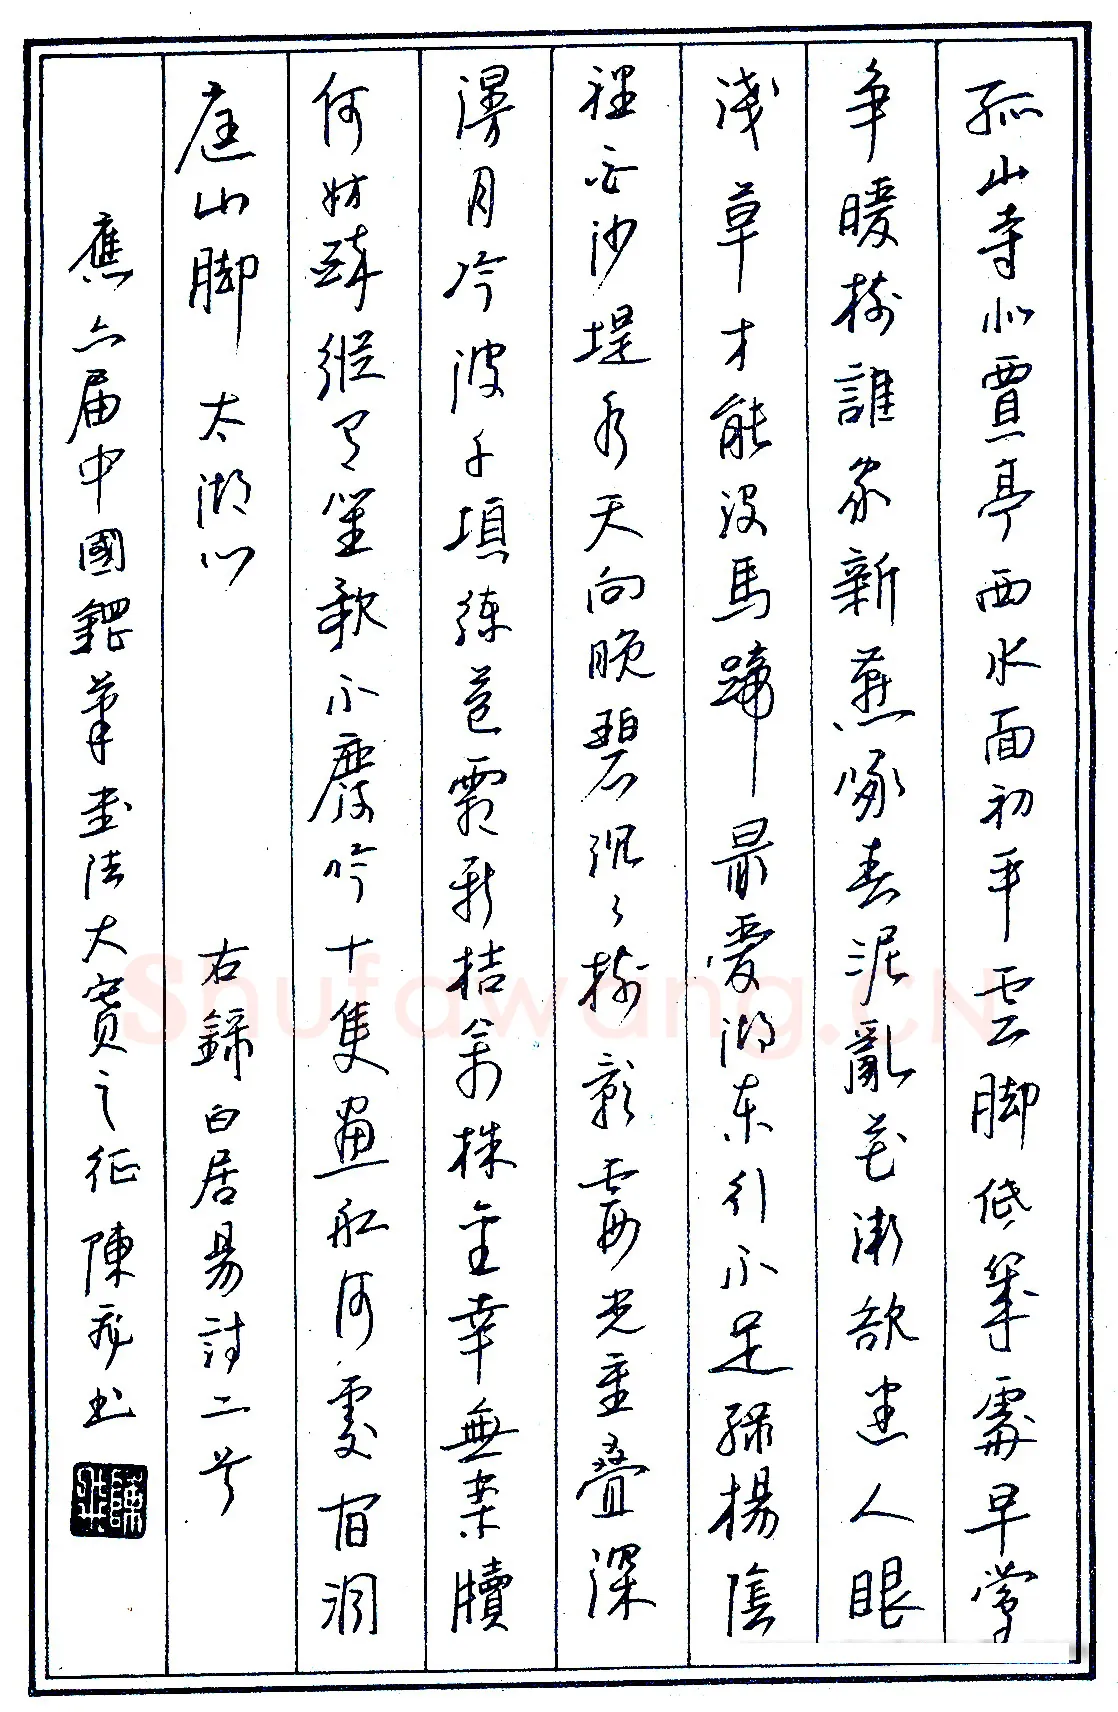 孤山寺北賈亭西水面初平雲脚低幾處早鶯
争暖樹誰家新燕啄春泥亂花漸欲迷人眼
淺草才能没馬蹄最愛湖东行不足綠楊陰
裡白沙堤水天向晚碧沉〻樹影霞光重叠深
浸月冷波千頃練苞霜新桔萬株金幸無案牘
何妨醉縱有笙歌不廢吟十隻畫船何處宿洞
庭山脚 太湖心 右錄白居易詩二首
應六届中國鋼筆書法大賽之征 陳 書
Shufawang.CN